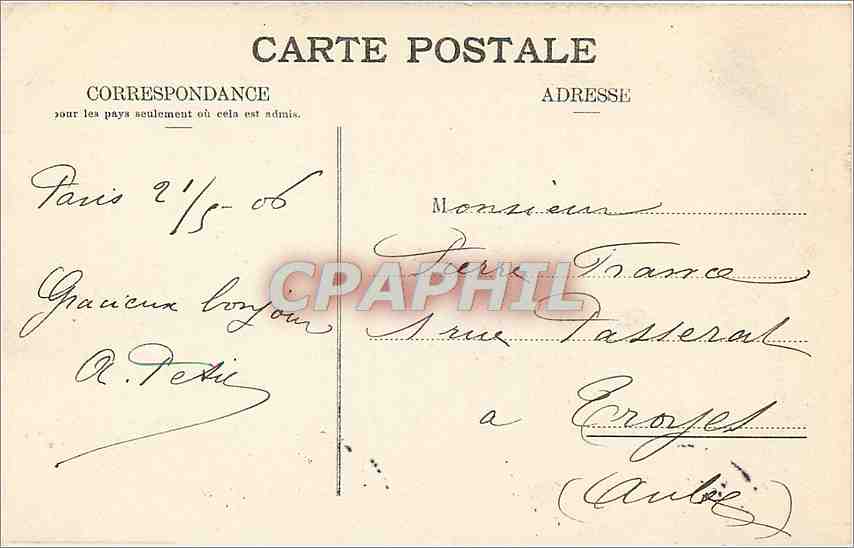 CARTE POSTALE
CORRESPONDANCE
pour les pays seulement où cela est admis.
ADRESSE
Paris 21/5-06
Gracieux bonjour
A. Petit
Monsieur
Pierre France
1 rue Passerat
a Troyes
(Aube)
CPAPHIL